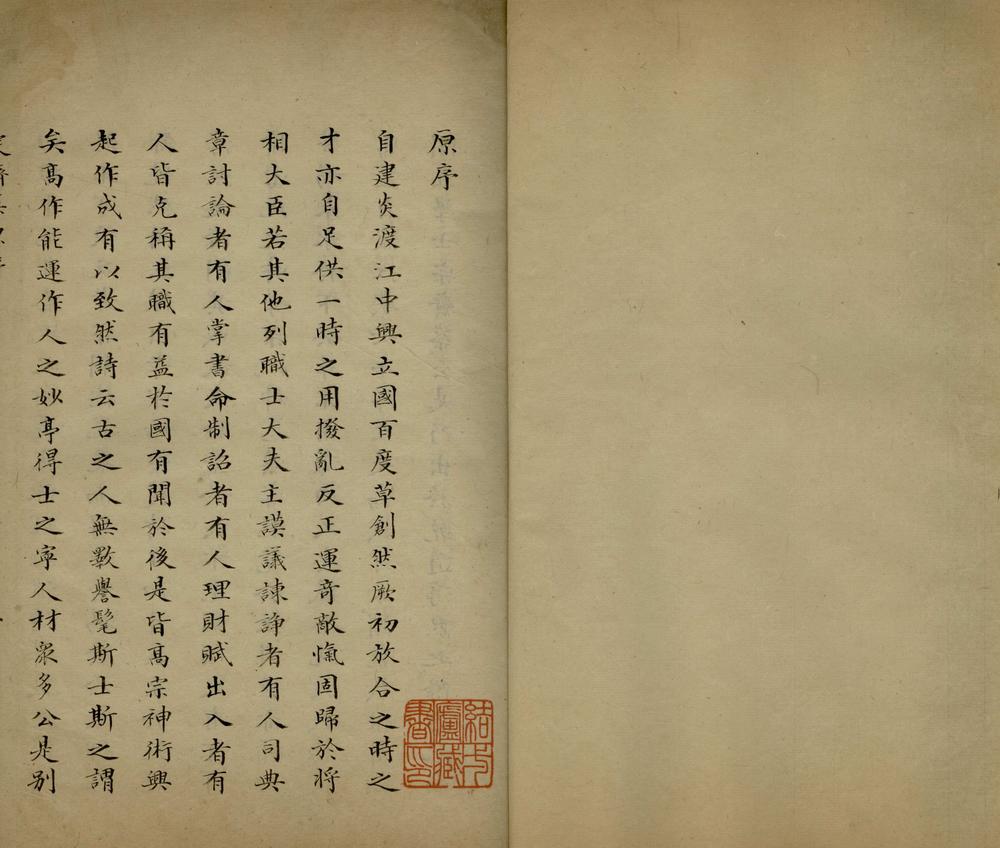 原序
自建炎渡江中興立國百度草創然厥初放合之時之
才亦自足供一時之用撥亂反正運竒敵愾固歸於將
相大臣若其他列職士大夫主謨議諌諍者有人司典
章討論者有人掌書命制詔者有人理財賦出入者有
人皆克稱其職有益於國有聞於後是皆髙宗神術興
起作成有以致然詩云古之人無斁譽髦斯士斯之謂
矣髙作能運作人之妙亭得士之寜人材衆多公是别
結一廬藏書印